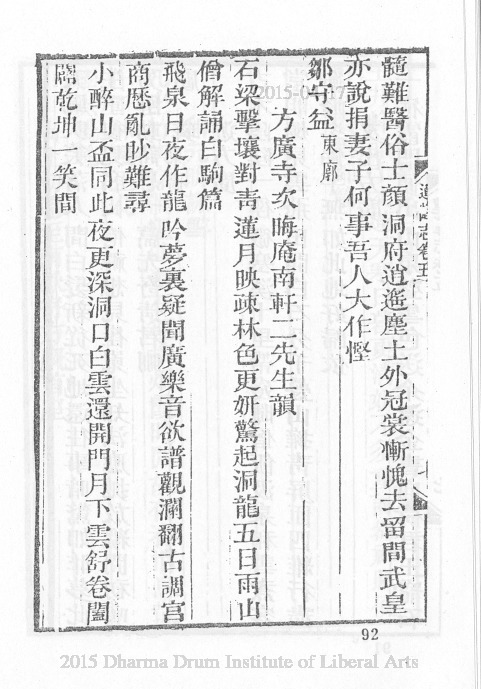 髓難醫俗士顔洞府逍遙塵土外冠裳慚愧去留間武皇
亦說捐妻子何事吾人大作慳
鄒守益東廓
方廣寺次晦庵南軒二先生韻
石梁擊壤對青蓮月映疎林色更妍驚起洞龍五日雨山
僧解誦白駒篇
飛泉日夜作龍吟夢裏疑聞廣樂音欲譜觀瀾翻古調宮
商歷亂眇難尋
小醉山盃同此夜更深洞口白雲還開門月下雲舒卷闔
闢乾坤一笑間
92
2015 Dharma Drum Institute of Liberal Arts